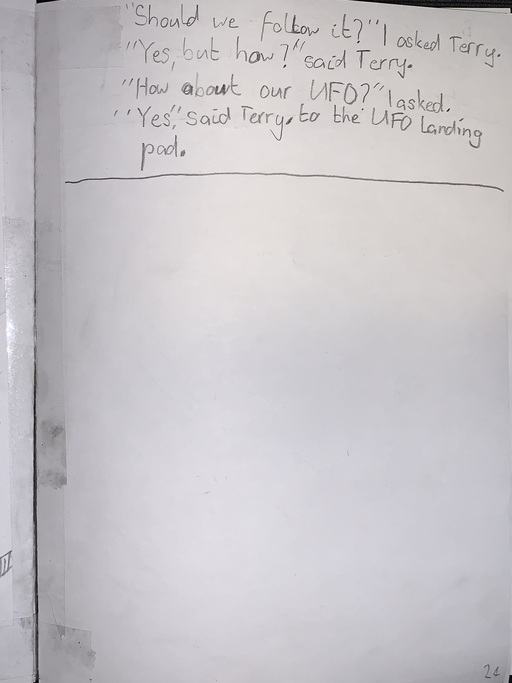 "Should we follow it?" I asked Terry.
"Yes, but how?" said Terry.
"How about our UFO?" I asked.
"Yes," said Terry. to the UFO Landing
pad.
21